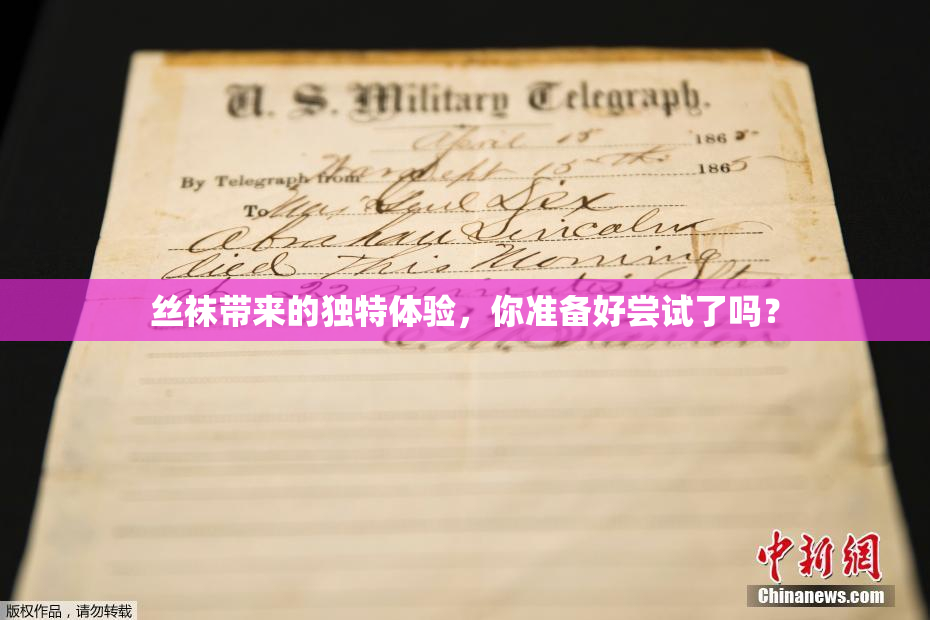 U. S. Military Telegraph.
April 15 1865
By Telegraph from War Dept 15th 1865
To Maj Genl Dix
Abraham Lincoln
died This Morning
at 22 minutes after
丝袜带来的独特体验，你准备好尝试了吗？
E. M. Stanton
中新网
Chinanews.com
版权作品，请勿转载